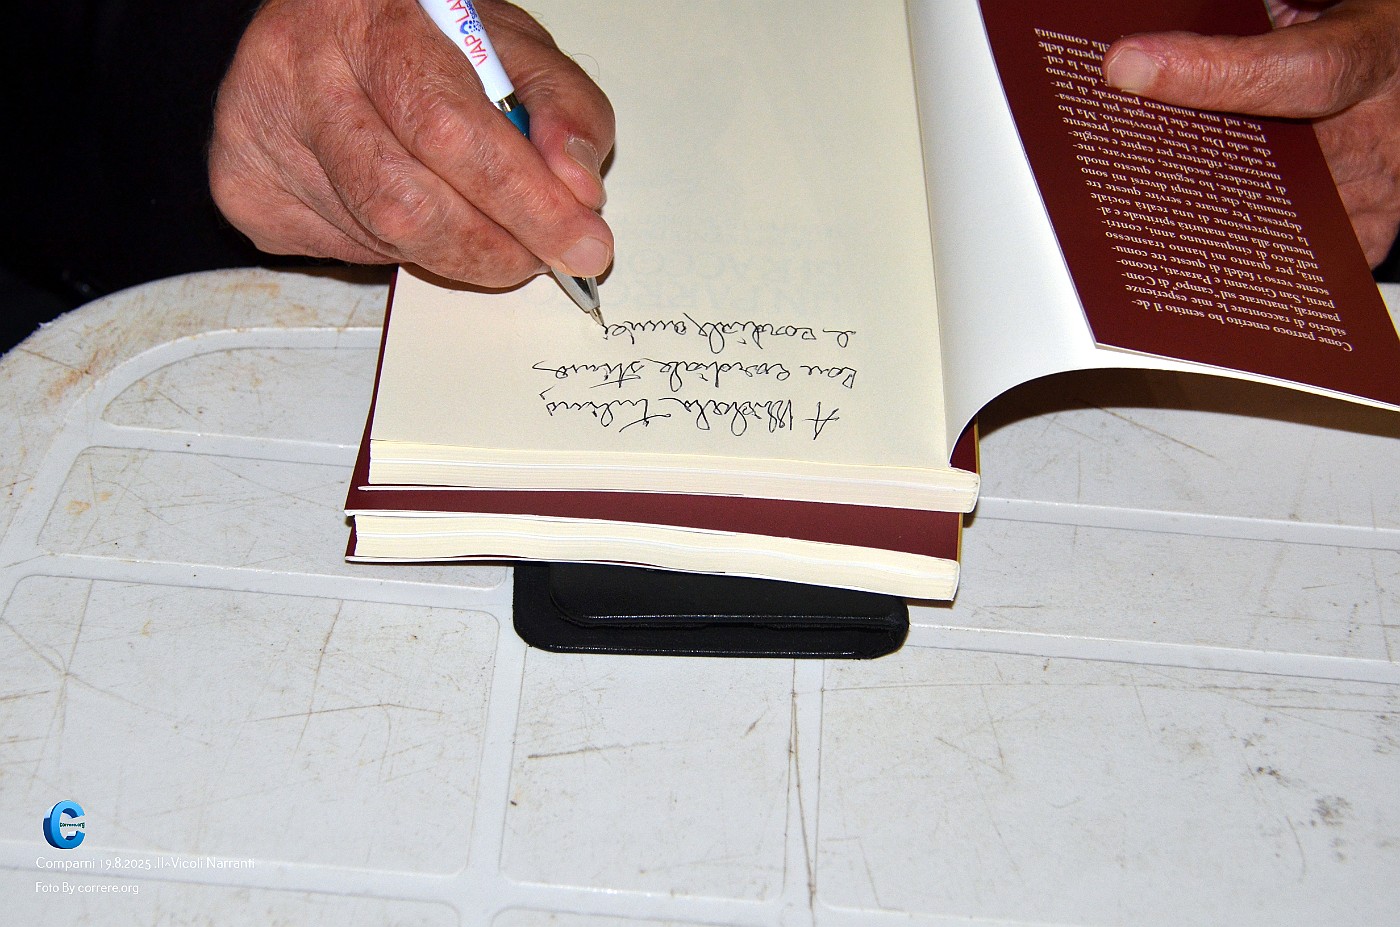 A Michele
con cordiale stima
e cordiale amici
Come parroco emerito ho sentito il de-
siderio di raccontare le mie esperienze
pastorali, maturate sul "campo" di Com-
parni, San Giovanni e Paravati, ricono-
scente verso i fedeli di queste tre comu-
nità, per quanto mi hanno trasmesso
nell'arco di cinquantuno anni, contri-
buendo alla mia maturità spirituale e al-
la comprensione di una realtà sociale
depressa. Per amare e servire queste tre
comunità, che in tempi diversi mi sono
state affidate, ho seguito questo modo
di procedere: ascolare, osservare, me-
morizzare, riflettere per capire e sceglie-
re solo ciò che è bene, tenendo presente
che solo Dio non è provvisorio. Ma ho
pensato anche che le regole più necessa-
rie nel mio ministero pastorale di par-
dovevano
lità, la cul-
spetto delle
ella comunità
VAPOLAV
correre.org
Comparni 19.8.2025 .II-Vicoli Narranti
Foto By correre.org